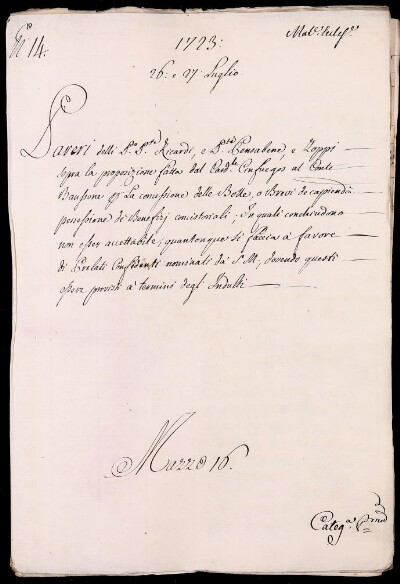 N.° 14.
1723.
Mat.e Eccles.e
26. e 27. Luglio
Paveri delli P.mo P.nte Ricardi, e P.nte Pensabene, e Zoppi
sopra la proposizione fatta dal Card.le Cenfuegos al Conte
la concessione delle Bolle, o Brevi de capiendi
possessione di Beneficj concistoriali; In quali conchiudono
non esser accettabile, quantonque si faccia a favore
di Prelati Confidenti nominati da S. M., dovendo questi
esser provisti a termini degl Indulti
Mazzo 16.
Categ.a P.ma